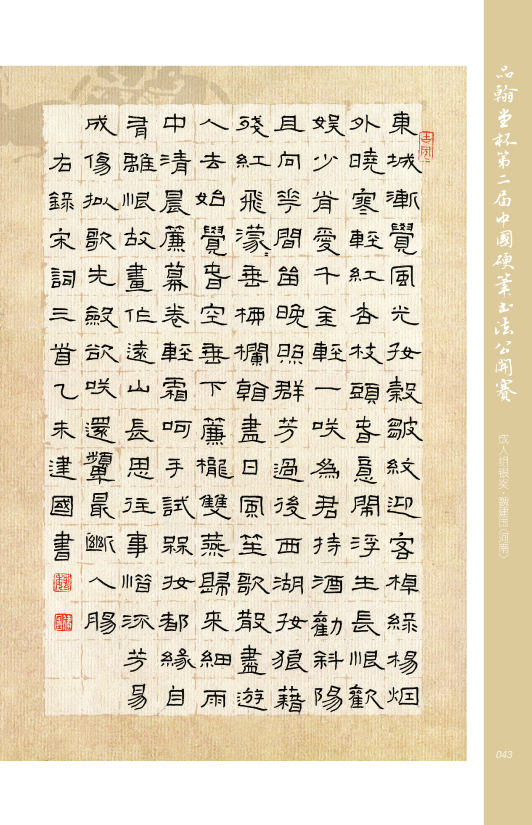 品翰堂杯第二届中國硬筆书法公開賽
成人组银奖·魏建国（河南）
東城漸覺風光好縠皺紋迎客棹綠楊烟
外曉寒輕紅杏枝頭春意鬧浮生長恨歡
娛少肯愛千金輕一咲為君持酒勸斜陽
且向華間留晚照群芳過後西湖好狼藉
殘紅飛濛〻垂柳欄幹盡日風笙歌散盡遊
人去始覺春空垂下簾櫳雙燕歸來細雨
中清晨簾幕卷輕霜呵手試梅妝都緣自
有離恨故畫作遠山長思往事惜流芳易
成傷擬歌先斂欲咲還顰最斷人腸
右錄宋詞三首乙未建國書
043